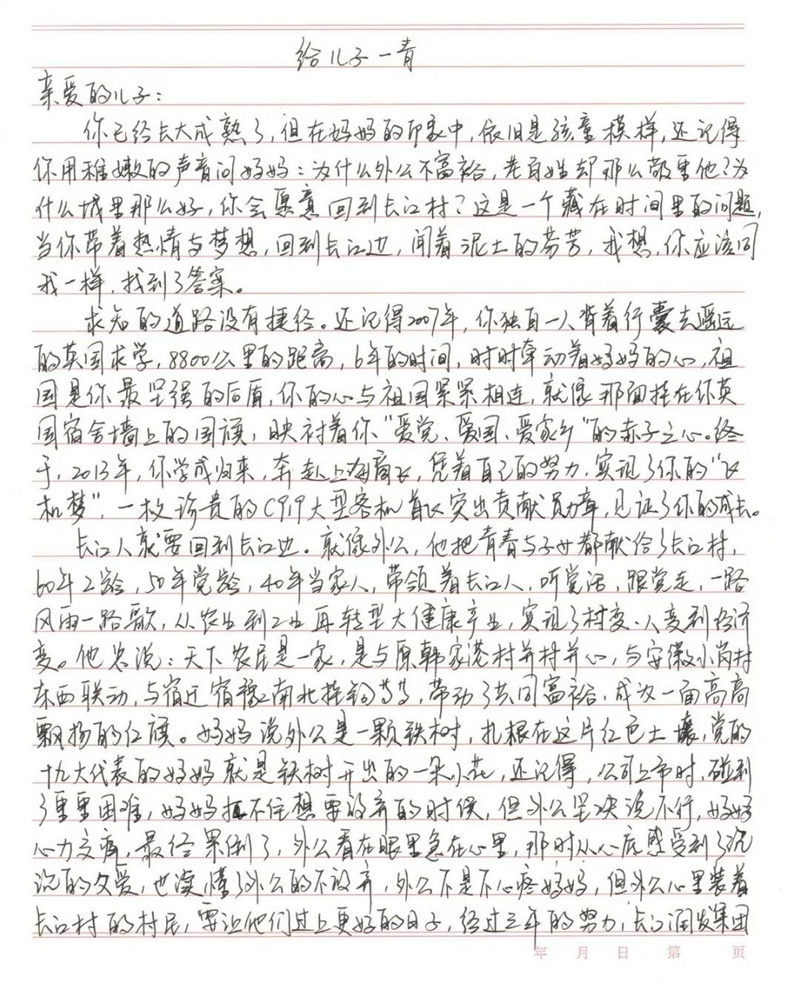 给儿子一青
亲爱的儿子：
你已经长大成熟了，但在妈妈的印象中，依旧是孩童模样，还记得
你用稚嫩的声音问妈妈：为什么外公不富裕，老百姓却那么敬重他？为
什么城里那么好，你会愿意回到长江村？这是一个藏在时间里的问题，
当你带着热情与梦想，回到长江边，闻着泥土的芬芳，我想，你应该同
我一样，找到了答案。
求知的道路没有捷径。还记得2007年，你独自一人背着行囊去遥远
的英国求学，8800公里的距离，6年的时间，时时牵动着妈妈的心，祖
国是你最坚强的后盾，你的心与祖国紧紧相连，就像那面挂在你英
国宿舍墙上的国旗，映衬着你“爱党、爱国、爱家乡”的赤子之心。终
于，2013年，你学成归来，奔赴上海商飞，凭着自己的努力，实现了你的“飞
机梦”，一枚珍贵的C919大型客机首飞突出贡献员勋章，见证了你的成长。
长江人就要回到长江边。就像外公，他把青春与子女都献给了长江村，
60年工龄，50年党龄，40年当家人，带领着长江人，听党话，跟党走，一路
风雨一路歌，从农业到工业再转型大健康产业，实现了村变、人变到经济
变。他常说：天下农民是一家，是与原韩家港村并村并心，与安徽小岗村
东西联动，与宿迁宿豫南北挂钩等等，带动了共同富裕，成为一面高高
飘扬的红旗。妈妈说外公是一颗铁树，扎根在这片红色土壤，党的
十九大代表的妈妈就是铁树开出的一朵小花，还记得，公司上市时，碰到
了重重困难，妈妈扛不住想要放弃的时候，但外公坚决说不行，妈妈
心力交瘁，最终累倒了，外公看在眼里急在心里，那时从心底感受到了沉
沉的父爱，也读懂了外公的不放弃，外公不是不心疼妈妈，但外公心里装着
长江村的村民，要让他们过上更好的日子，经过三年的努力，长江润发集团
年 月 日 第 页